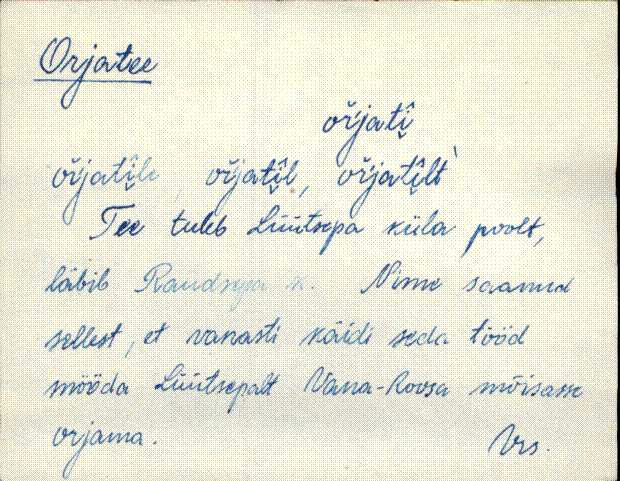 Orjatee
oŕjatî̮
oŕjatî̮le oŕjatî̮l, oŕjatî̮lt`
Tee tuleb Lüütsepa küla poolt,
läbib Raudsepa k. Nime saanud
sellest, et vanasti käidi seda tööd
mööda Lüütsepalt Vana-Roosa mõisasse
orjama.
Vrs.